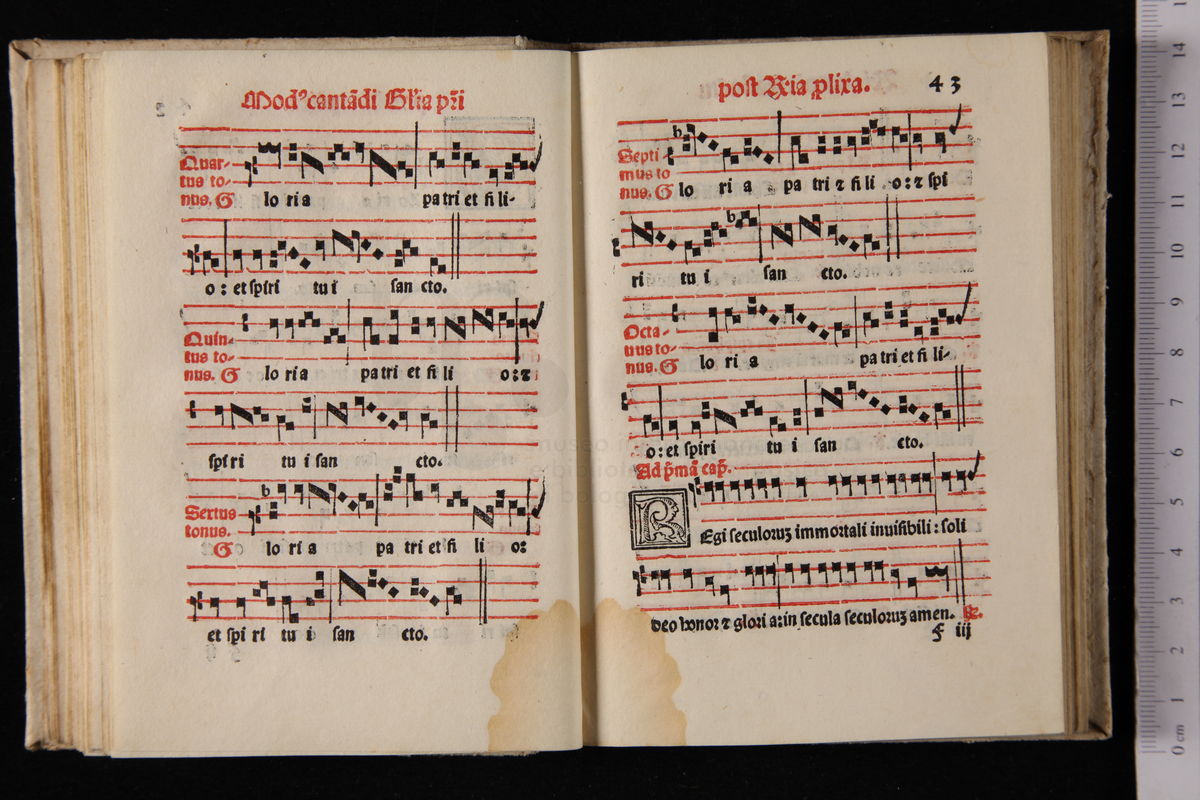 Modꝰ cantãdi Gl'ia pr̃i
Quar-
tus to-
nus. G lo ri a pa tri et fi li-
o : et spiri tu i san cto.
Quin-
tus to-
nus. G lo ri a pa tri et fi li o : ⁊
spiri tu i san cto.
Sextus
tonus.
G lo ri a pa tri et fi li o:
et spi ri tu i san cto.
post
plixa.
43
Septi
mus to
nus. G lo ri a pa tri ⁊ fi li o : ⁊ spi
ri tu i san cto.
Octa-
uus to-
nus. G lo ri a pa tri et fi li-
o : et spiri tu i san cto.
Ad p̃mã cap̃.
R Egi seculoruꝫ immortali inuisibili : soli
deo honor ⁊ glori a: in secula seculoruꝫ amen.
f iij
14
13
12
11
10
9
8
7
6
5
4
3
2
1
0 cm